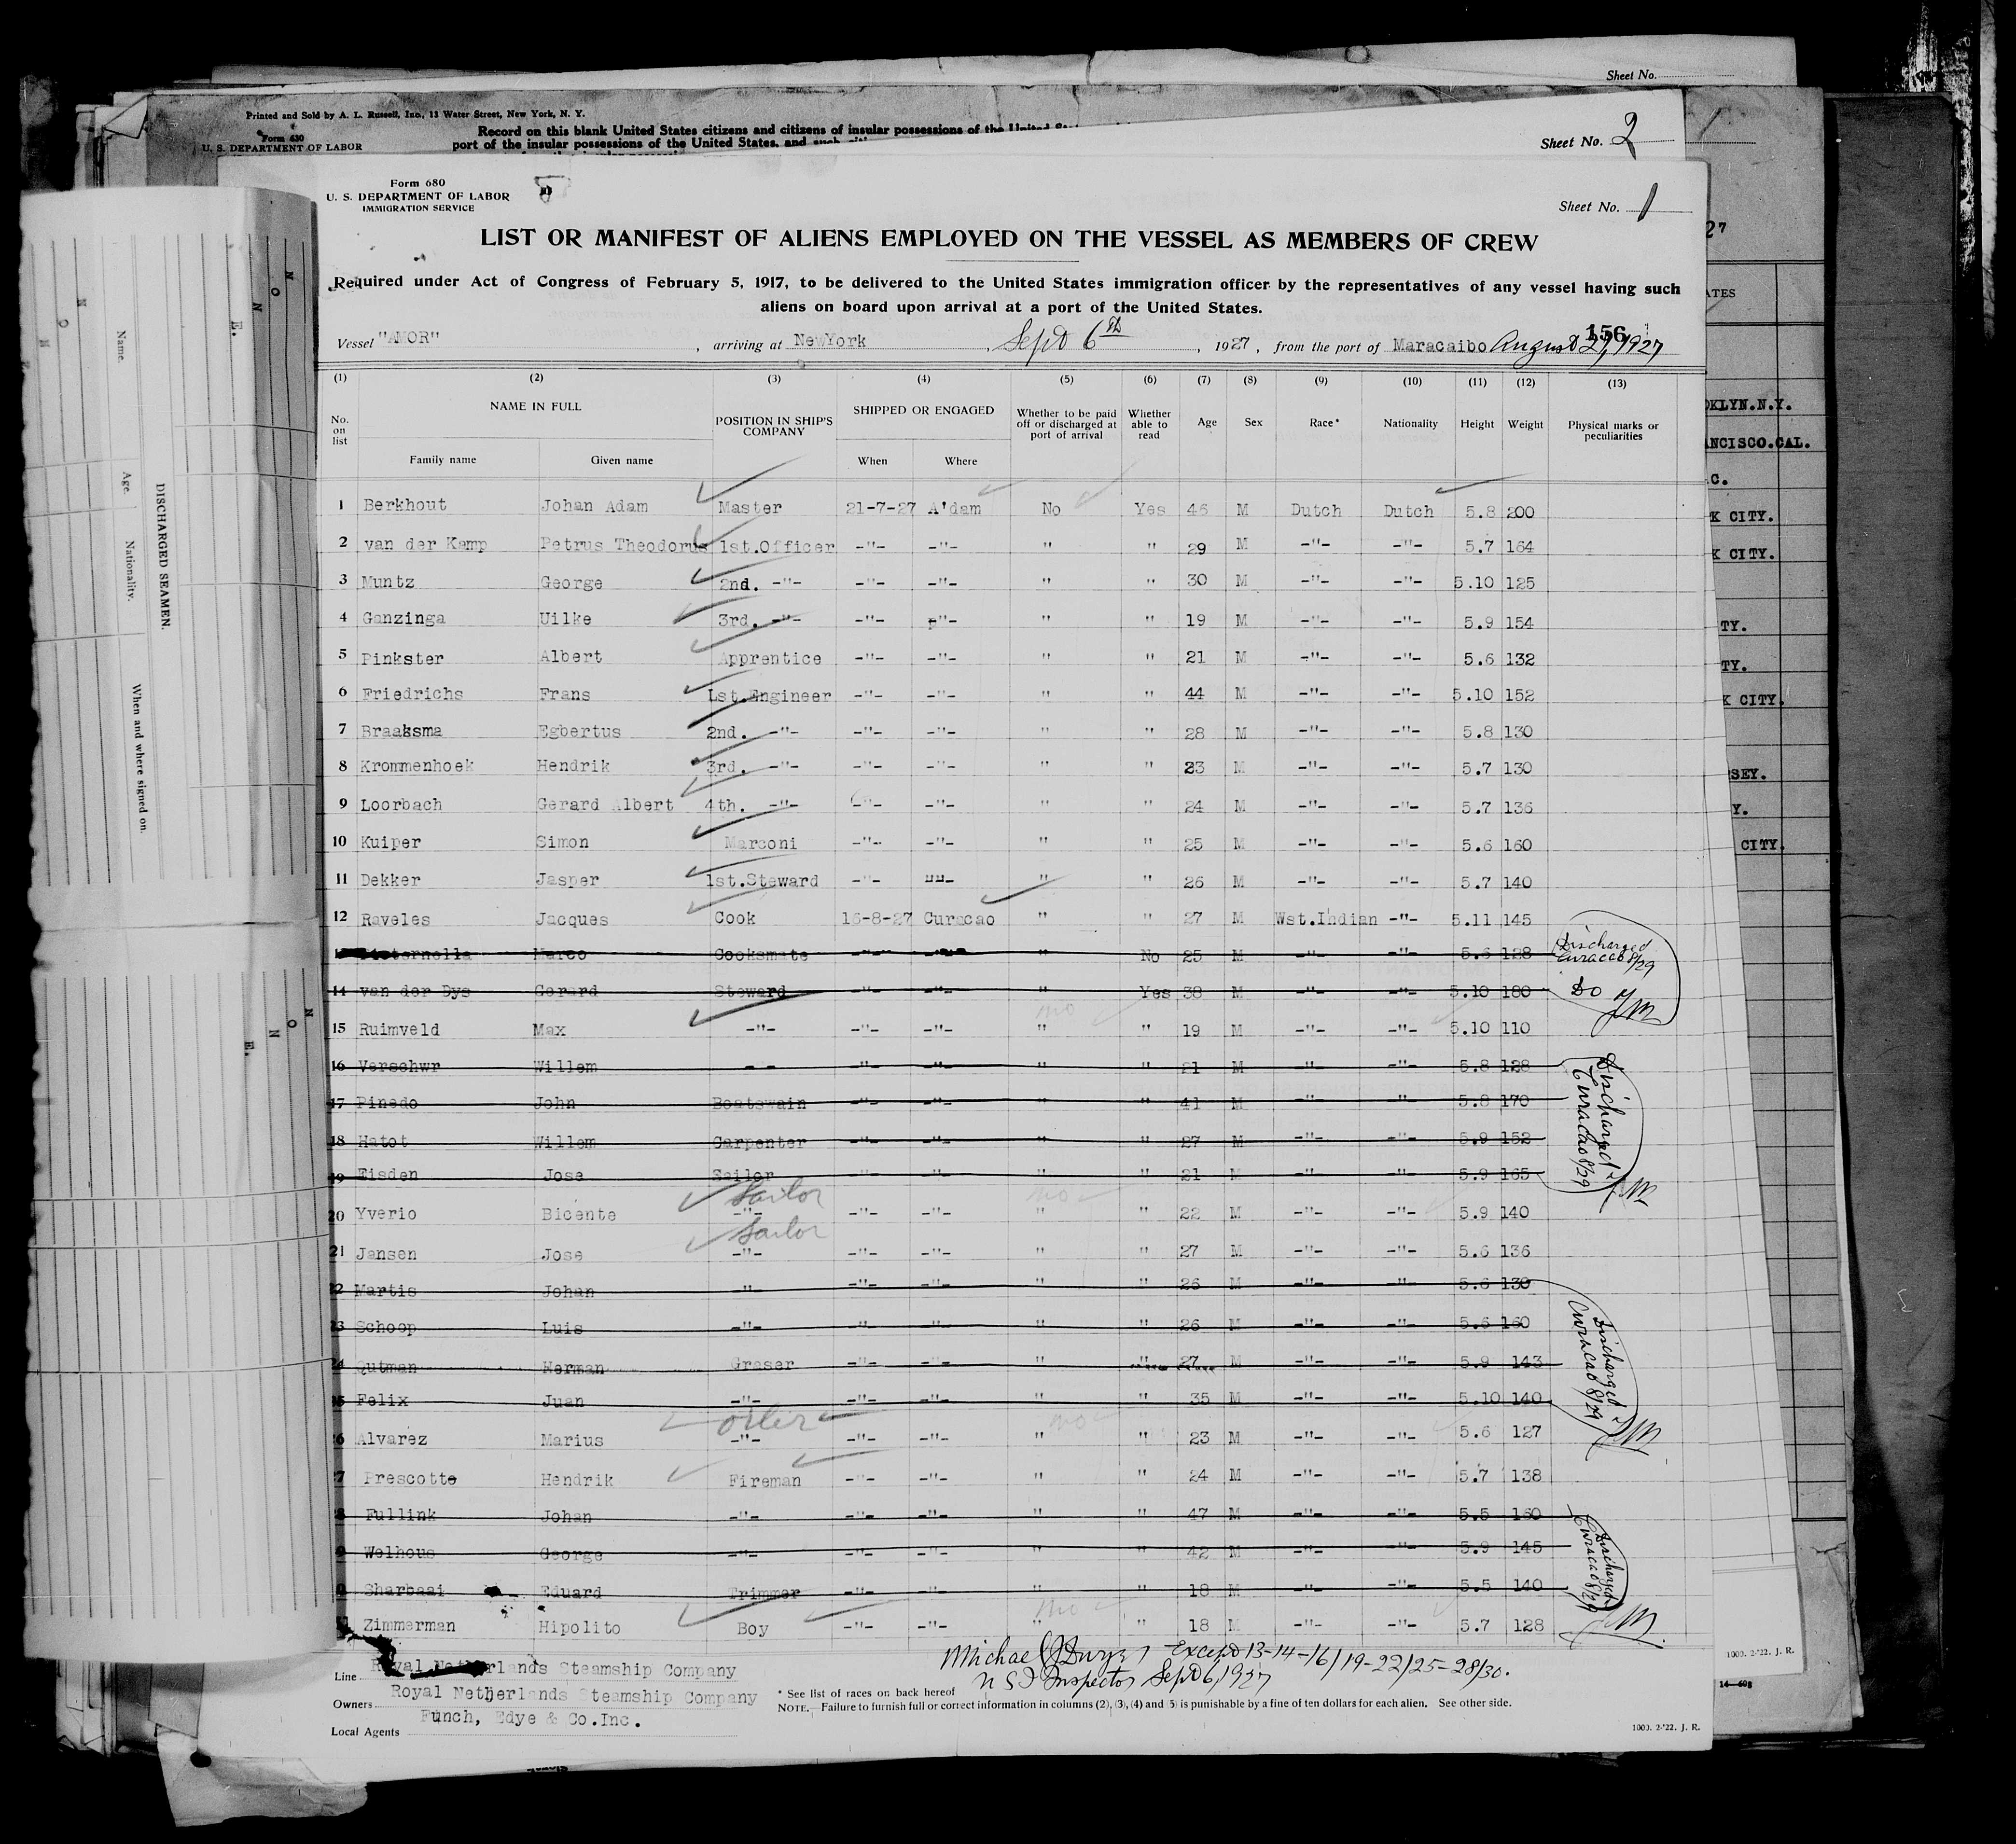 Sheet No.
Printed and Sold by A. L. Russell, Inc., 13 Water Street, New York, N. Y.
Form 630
U. S. DEPARTMENT OF LABOR
Record on this blank United States citizens and citizens of insular possessions of the United
port of the insular possessions of the United States, and such
Sheet No. 2
Form 680
U. S. DEPARTMENT OF LABOR
IMMIGRATION SERVICE
Sheet No. 1
LIST OR MANIFEST OF ALIENS EMPLOYED ON THE VESSEL AS MEMBERS OF CREW
Required under Act of Congress of February 5, 1917, to be delivered to the United States immigration officer by the representatives of any vessel having such
aliens on board upon arrival at a port of the United States.
156
Vessel "AMOR", arriving at NewYork, Sept 6th, 1927, from the port of Maracaibo August 27, 1927
(1) (2) (3) (4) (5) (6) (7) (8) (9) (10) (11) (12) (13)
No. on list
NAME IN FULL
Family name Given name
POSITION IN SHIP'S COMPANY
SHIPPED OR ENGAGED
When Where
Whether to be paid off or discharged at port of arrival
Whether able to read
Age Sex Race* Nationality Height Weight
Physical marks or peculiarities
1 Berkhout Johan Adam Master 21-7-27 A'dam No Yes 46 M Dutch Dutch 5.8 200
2 van der Kamp Petrus Theodorus 1st.Officer -"- -"- " " 29 M -"- -"- 5.7 164
3 Muntz George 2nd. -"- -"- -"- " " 30 M -"- -"- 5.10 125
4 Ganzinga Uilke 3rd. -"- -"- p"- " " 19 M -"- -"- 5.9 154
5 Pinkster Albert Apprentice -"- -"- " " 21 M -"- -"- 5.6 132
6 Friedrichs Frans Lst.Engineer -"- -"- " " 44 M -"- -"- 5.10 152
7 Braaksma Egbertus 2nd. -"- -"- -"- " " 28 M -"- -"- 5.8 130
8 Krommenhoek Hendrik 3rd. -"- -"- -"- " " 23 M -"- -"- 5.7 130
9 Loorbach Gerard Albert 4th. -"- -"- -"- " " 24 M -"- -"- 5.7 136
10 Kuiper Simon Marconi -"- -"- " " 25 M -"- -"- 5.6 160
11 Dekker Jasper 1st.Steward -"- ""- " " 26 M -"- -"- 5.7 140
12 Raveles Jacques Cook 16-8-27 Curacao " " 27 M Wst.Indian -"- 5.11 145
Marco Cooksmate -"- -"- " No 25 M -"- -"- 5.6 128 Discharged Curacao 8/29
14 van der Dys Gerard Steward -"- -"- " Yes 38 M -"- -"- 5.10 180 Do
15 Ruimveld Max -"- -"- -"- " no " 19 M -"- -"- 5.10 110
16 Verschwr Willem - - -"- -"- " " 21 M -"- -"- 5.8 128
17 Pinedo John Boatswain -"- -"- " " 41 M -"- -"- 5.8 170
18 Hatot Willem Carpenter -"- -"- " " 27 M -"- -"- 5.9 152
19 Eisden Jose Sailor -"- -"- " " 21 M -"- -"- 5.9 165
Discharged Curacao 8/29
20 Yverio Bicente -"- Sailor -"- -"- " no " 22 M -"- -"- 5.9 140
21 Jansen Jose -"- Sailor -"- -"- " " 27 M -"- -"- 5.6 136
22 Martis Johan -"- -"- -"- " " 26 M -"- -"- 5.6 130
23 Schoop Luis -"- -"- -"- " " 26 M -"- -"- 5.6 160
24 Qutman Herman Graser -"- -"- " " 27 M -"- -"- 5.9 143
25 Felix Juan -"- -"- -"- " " 35 M -"- -"- 5.10 140
Discharged Curacao 8/29
6 Alvarez Marius -"- oiler -"- -"- " no " 23 M -"- -"- 5.6 127
7 Prescotte Hendrik Fireman -"- -"- " " 24 M -"- -"- 5.7 138
8 Fullink Johan -"- -"- -"- " " 47 M -"- -"- 5.5 160
9 Welhous George -"- -"- -"- " " 42 M -"- -"- 5.9 145
Sharbaai Eduard Trimmer -"- -"- " " 18 M -"- -"- 5.5 140
Discharged Curacao 8/29
Zimmerman Hipolito Boy -"- -"- " no " 18 M -"- -"- 5.7 128
Michael J Dwyer Except 13-14-16/19-22/25-28/30.
U S I Inspector Sept 6, 1927
Line Royal Netherlands Steamship Company
Owners Royal Netherlands Steamship Company
Local Agents Funch, Edye & Co.Inc.
* See list of races on back hereof
NOTE.—Failure to furnish full or correct information in columns (2), (3), (4) and (5) is punishable by a fine of ten dollars for each alien. See other side.
1000. 2-'22. J. R.
1000. 2-'22. J. R.
14—608
DISCHARGED SEAMEN.
Name.
Age.
Nationality.
When and where signed on.
N O N E.
N O N E.
27
ATES
OKLYN.N.Y.
ANCISCO.CAL.
.C.
K CITY.
K CITY.
TY.
TY.
K CITY.
SEY.
Y.
CITY.